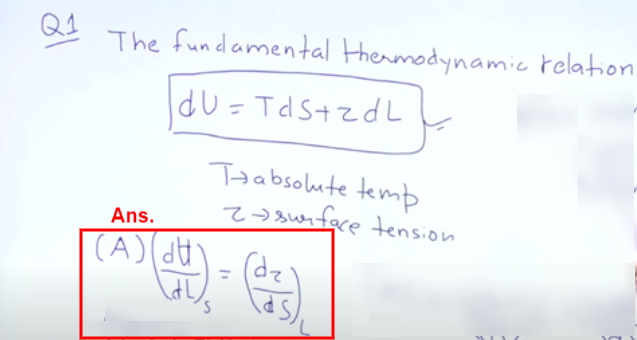 Q1 The fundamental thermodynamic relation
dU = TdS + τdL
T → absolute temp
τ → surface tension
Ans.
(A) (dU/dL)_S = (dτ/dS)_L